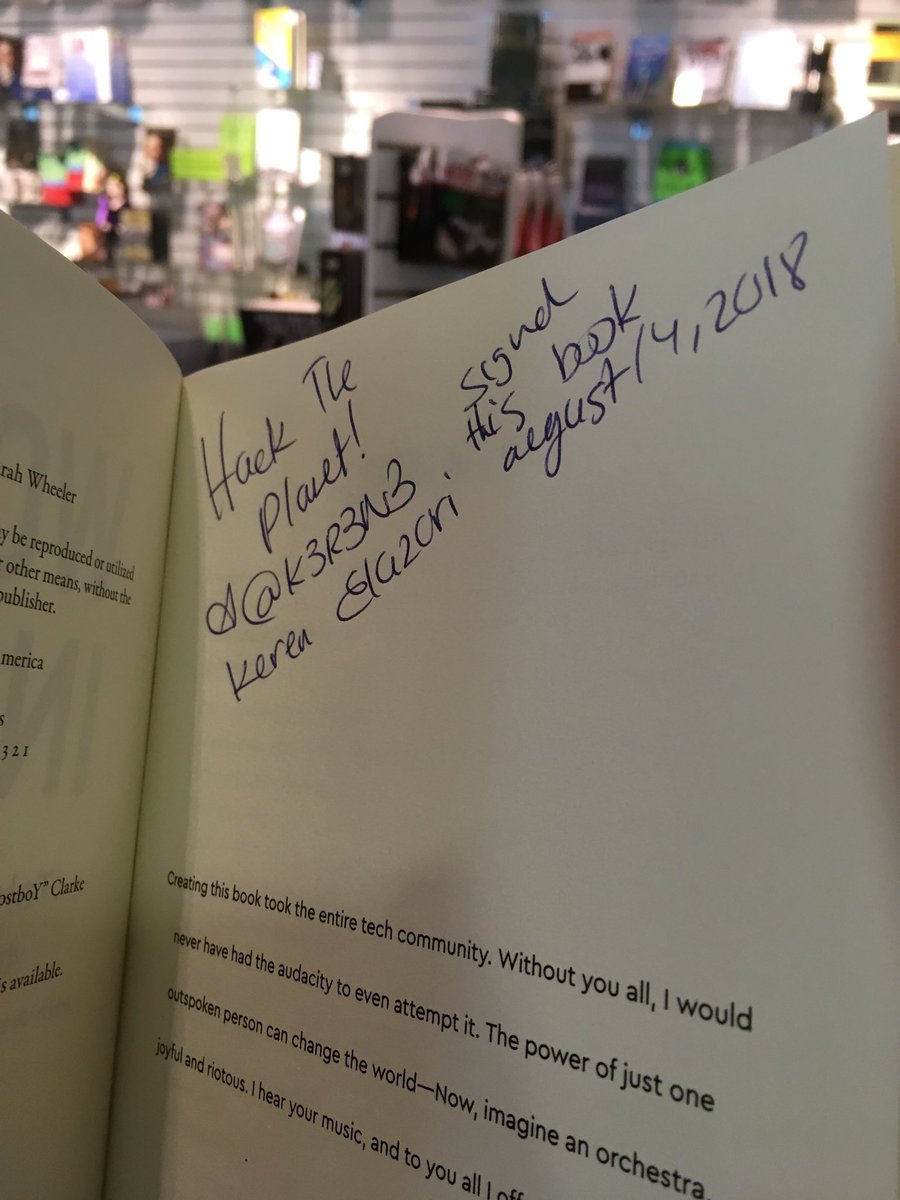 Hack The
Planet!
@K3R3N3
Keren Elazari
signd
this book
august 14, 2018
rah Wheeler
y be reproduced or utilized
r other means, without the
publisher.
merica
s
3 2 1
ostboY” Clarke
s available.
Creating this book took the entire tech community. Without you all, I would
never have had the audacity to even attempt it. The power of just one
outspoken person can change the world—Now, imagine an orchestra,
joyful and riotous. I hear your music, and to you all I off